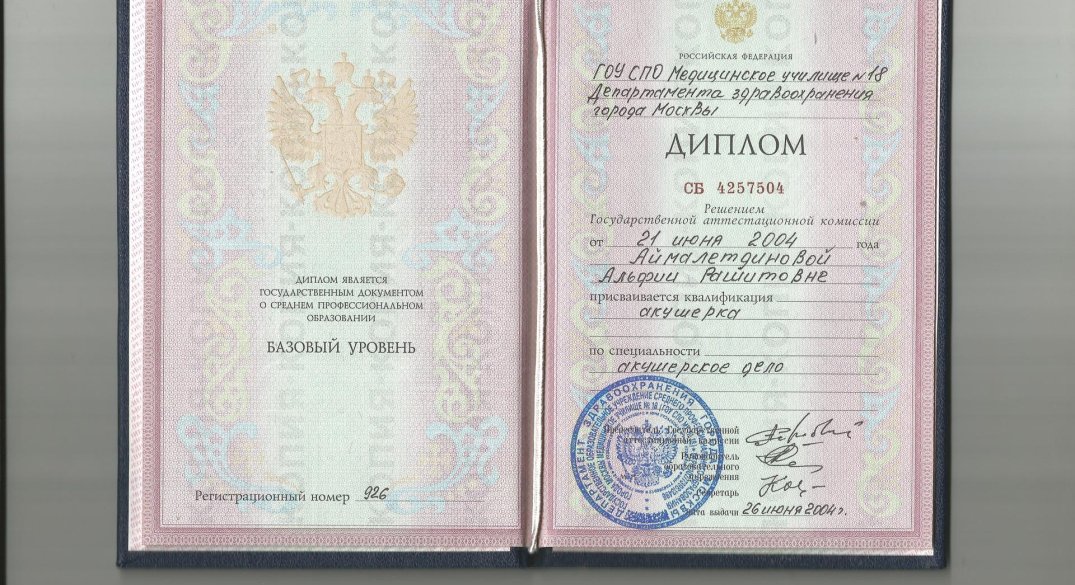 ДИПЛОМ ЯВЛЯЕТСЯ
ГОСУДАРСТВЕННЫМ ДОКУМЕНТОМ
О СРЕДНЕМ ПРОФЕССИОНАЛЬНОМ
ОБРАЗОВАНИИ
БАЗОВЫЙ УРОВЕНЬ
Регистрационный номер 926
РОССИЙСКАЯ ФЕДЕРАЦИЯ
ГОУ СПО Медицинское училище №18
Департамента здравоохранения
города Москвы
ДИПЛОМ
СБ 4257504
Решением
Государственной аттестационной комиссии
от 21 июня 2004 года
Аймалетдиновой
Альфии Рашитовне
присваивается квалификация
акушерка
по специальности
акушерское дело
Председатель Государственной
аттестационной комиссии
Руководитель
образовательного
учреждения
Секретарь
Дата выдачи 26 июня 2004 г.